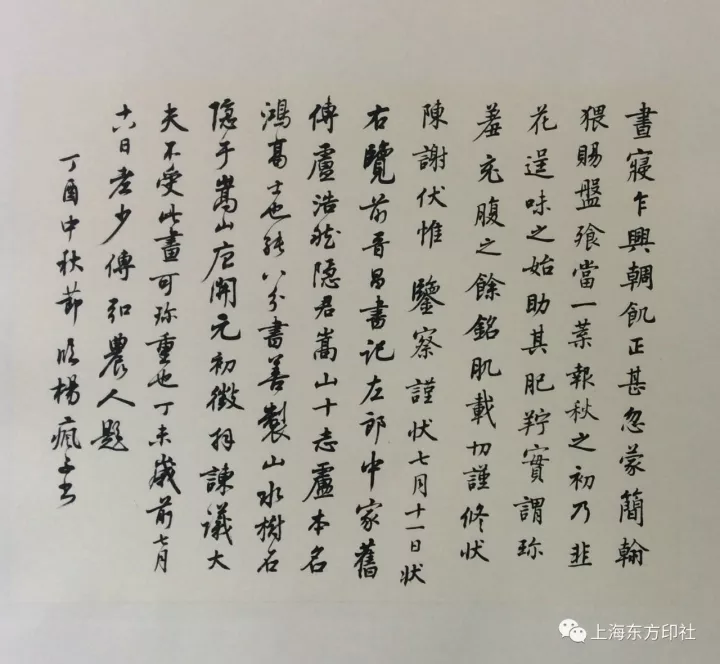 晝寢乍興輖飢正甚忽蒙簡翰
猥賜盤飱當一葉報秋之初乃韭
花逞味之始助其肥羜實謂珍
羞充腹之餘銘肌載切謹修狀
陳謝伏惟 鑒察謹狀七月十一日狀
右覽前晉昌書記左郎中家舊
傳盧浩然隱君嵩山十志盧本名
鴻高士也能八分書善製山水樹石
隐于嵩山唐開元初徵拜諫議大
夫不受此畫可珍重也丁未歲前七月
十八日老少傅弘農人題
丁酉中秋節臨楊瘋子書
上海东方印社